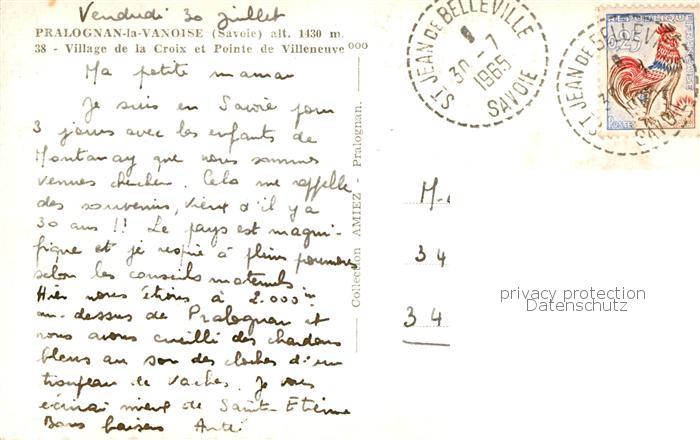 Vendredi 30 juillet
PRALOGNAN-la-VANOISE (Savoie) alt. 1430 m.
38 - Village de la Croix et Pointe de Villeneuve
Ma petite maman
Je suis en Savoie pour
3 jours avec les enfants de
Montanay que nous sommes
venues chercher. Cela me rappelle
des souvenirs, vieux d'il y a
30 ans !! Le pays est magni-
fique et je respire à pleins poumons
selon les conseils maternels.
Hier nous étions à 2.000 m
au-dessus de Pralognan et
nous avons cueilli des chardons
bleus au son des cloches d'un
troupeau de vaches. Je vous
écrirai mieux de Saint-Etienne
Bons baisers
Collection AMIEZ - Pralognan.
ST JEAN DE BELLEVILLE
30 - 7
1965
SAVOIE
ST JEAN DE BELLEVILLE
SAVOIE
0,25
POSTES
M.
34
34
privacy protection
Datenschutz